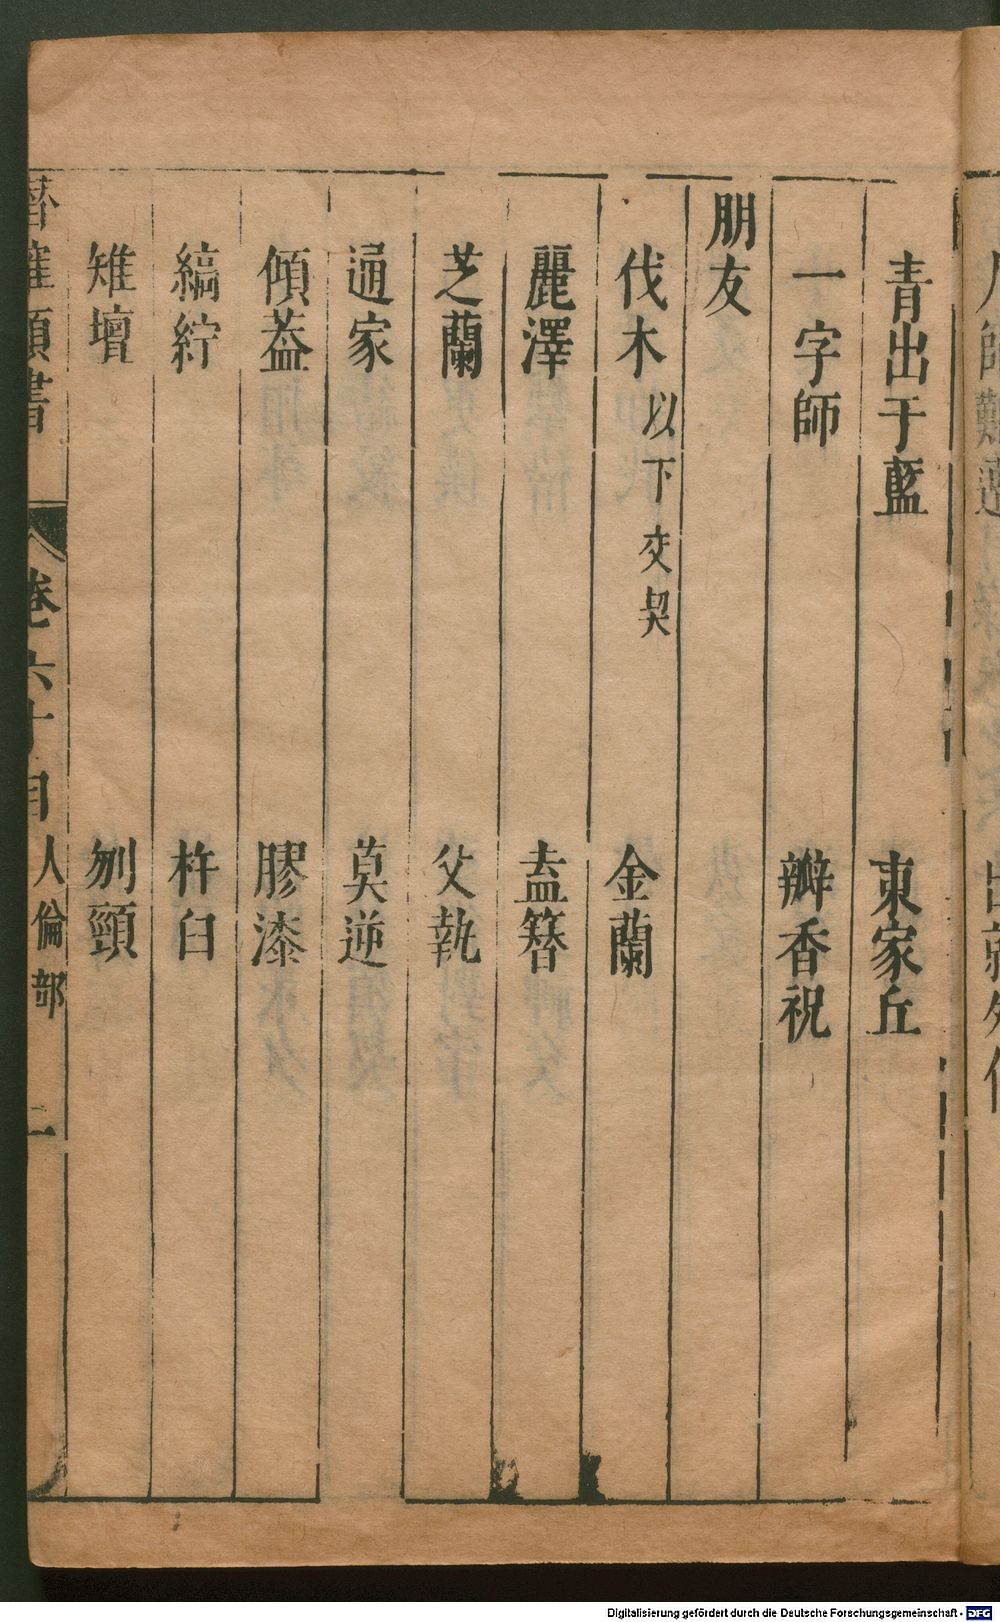 青出于藍　東家丘
一字師　瓣香祝
朋友
伐木以下交契　金蘭
麗澤　盍簪
芝蘭　父執
通家　莫逆
傾葢　膠漆
縞紵　杵臼
雉壇　刎頸
類書　卷六十目　人倫部　二
Digitalisierung gefördert durch die Deutsche Forschungsgemeinschaft - DFG